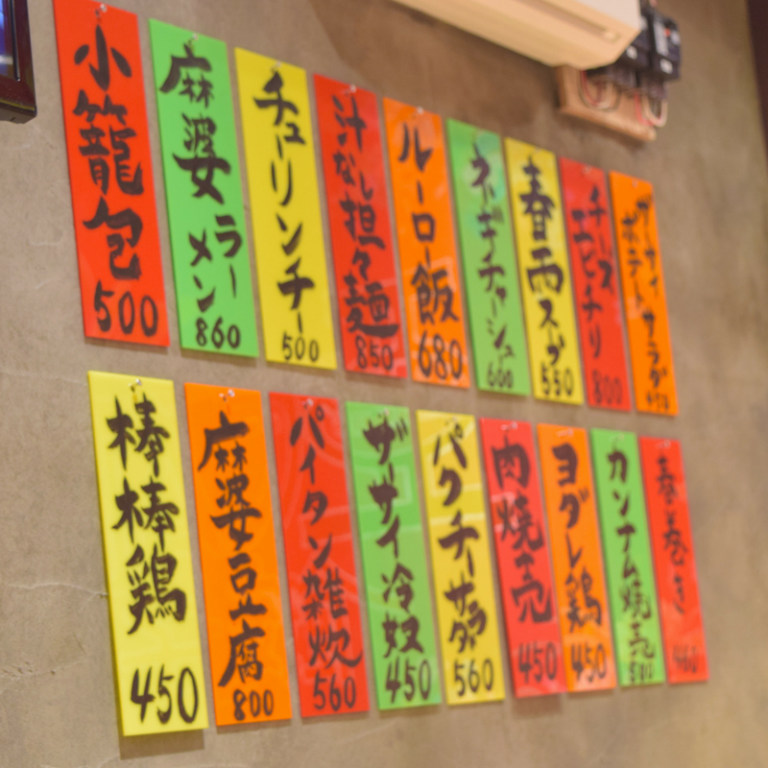 小籠包 500
麻婆ラーメン 860
チューリンチー 500
汁なし担々麺 850
ルーロー飯 680
ネギチャーシュ 600
春雨スープ 550
チーズエビチリ 800
ポテートサラダ
棒棒鶏 450
麻婆豆腐 800
パイタン雑炊 560
ザーサイ冷奴 450
パクチーサラダ 560
肉焼売 450
ヨダレ鶏 450
カンナム焼売
春巻き